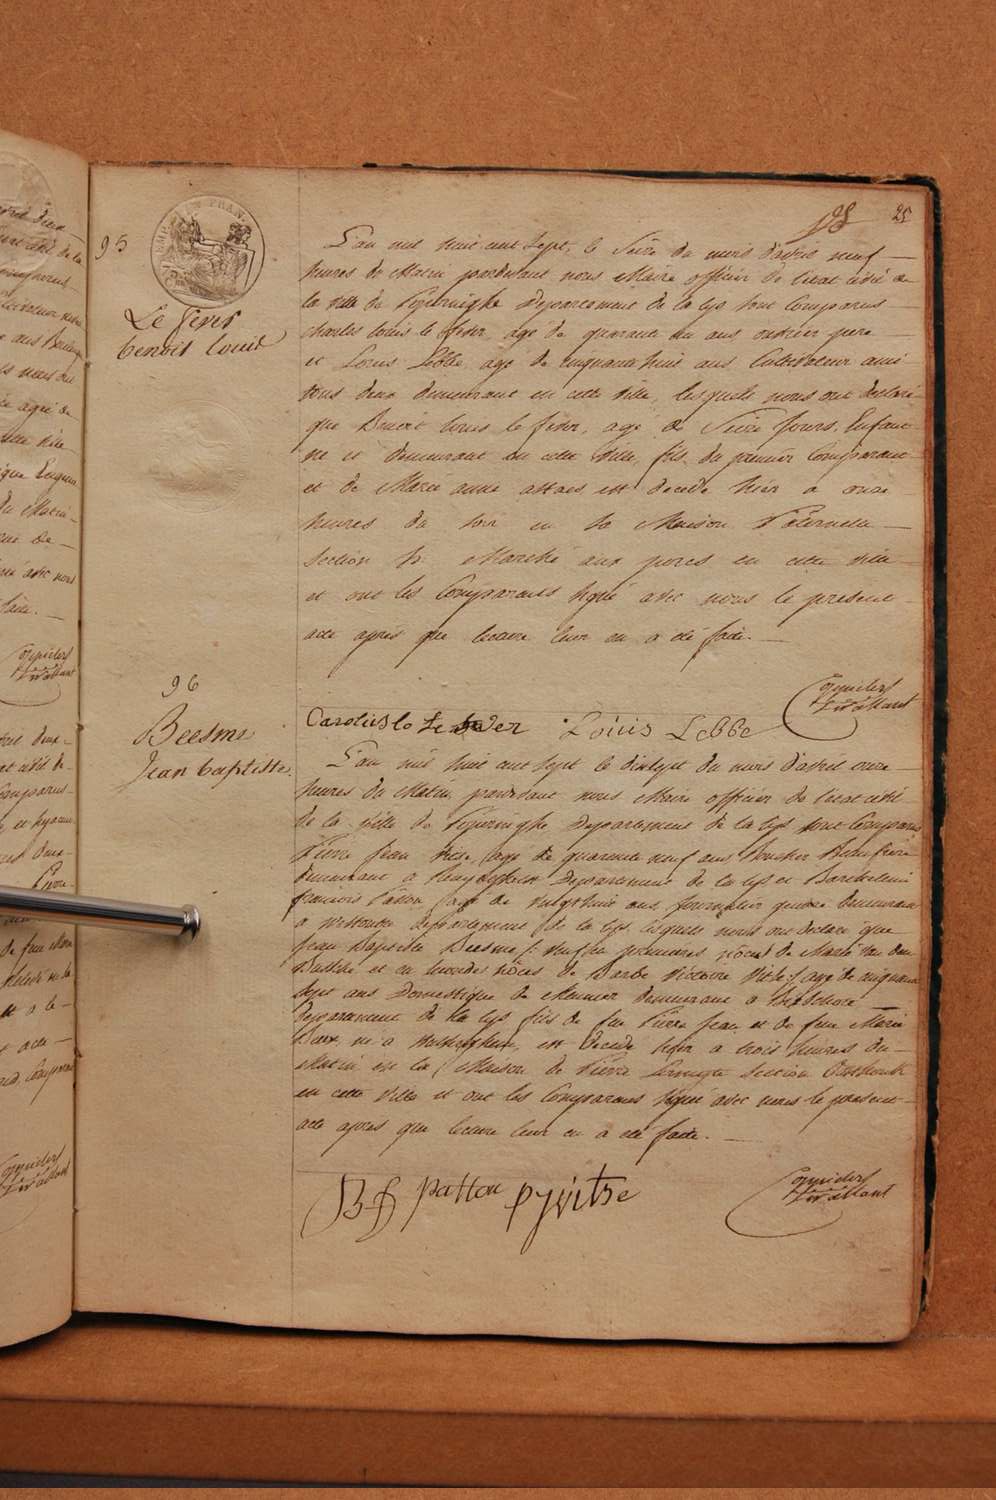 25
95
Le fever
benoit louis
L'an mil huit cent sept, le Seize du mois d'avril neuf
heures du Matin pardevant nous Maire officier de l'état civil de
la ville de Poperinghe Departement de la Lys sont Comparus
charles louis le fever, agé de quarant un ans, ouvrier pere
et Louis Lebbe agé de cinquante huit ans Cultivateur ami
tous deux demeurant en cette ville, lesquels nous ont declaré
que Benoit louis le fever, agé de Seize jours, Enfant
né et demeurant en cette ville, fils du premier Comparant
et de Marie anne attaes est decedé hier a onze
heures du soir en sa Maison Paternelle
Section b. Marché aux porcs en cette ville
et ont les Comparants signé avec nous le present
acte après que lecture leur en a été faite.
Carolus lo Le fever Louis Lebbe
96
Beesme
Jean baptiste
L'an mil huit cent sept le dixsept du mois d'avril onze
heures du Matin, pardevant nous Maire officier de l'état civil
de la ville de Poperinghe Departement de la Lys sont Comparus
Pierre Jean agé de quarante neuf ans Boucher Beaufrère
demeurant a Departement de la Lys et Barthelemi
francois Patton agé de vingthuit ans, journalier gendre demeurant
a departement de la Lys, lesquels nous ont declaré que
Jean Baptiste Beesme, (: veuf en premieres nôces de Marie van den
et en secondes nôces de Barbe Victoire :) agé de cinquante
sept ans Domestique de Meunier demeurant a
departement de la Lys fils de feu Pierre Jean, et de feue Marie
né a est decedé hier a trois heures du
Matin en la Maison de Pierre Section
en cette ville et ont les Comparans signé avec nous le present
acte après que lecture leur en a été faite.
BF patton pj vitse